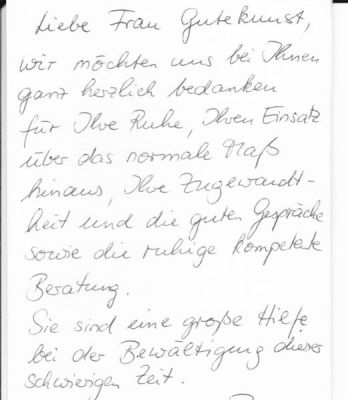 Liebe Frau Gutekunst,
wir möchten uns bei Ihnen
ganz herzlich bedanken
für Ihre Ruhe, Ihren Einsatz
über das normale Maß
hinaus, Ihre Zugewandt-
heit und die guten Gespräche
sowie die ruhige kompetente
Beratung.
Sie sind eine große Hilfe
bei der Bewältigung dieser
schwierigen Zeit.